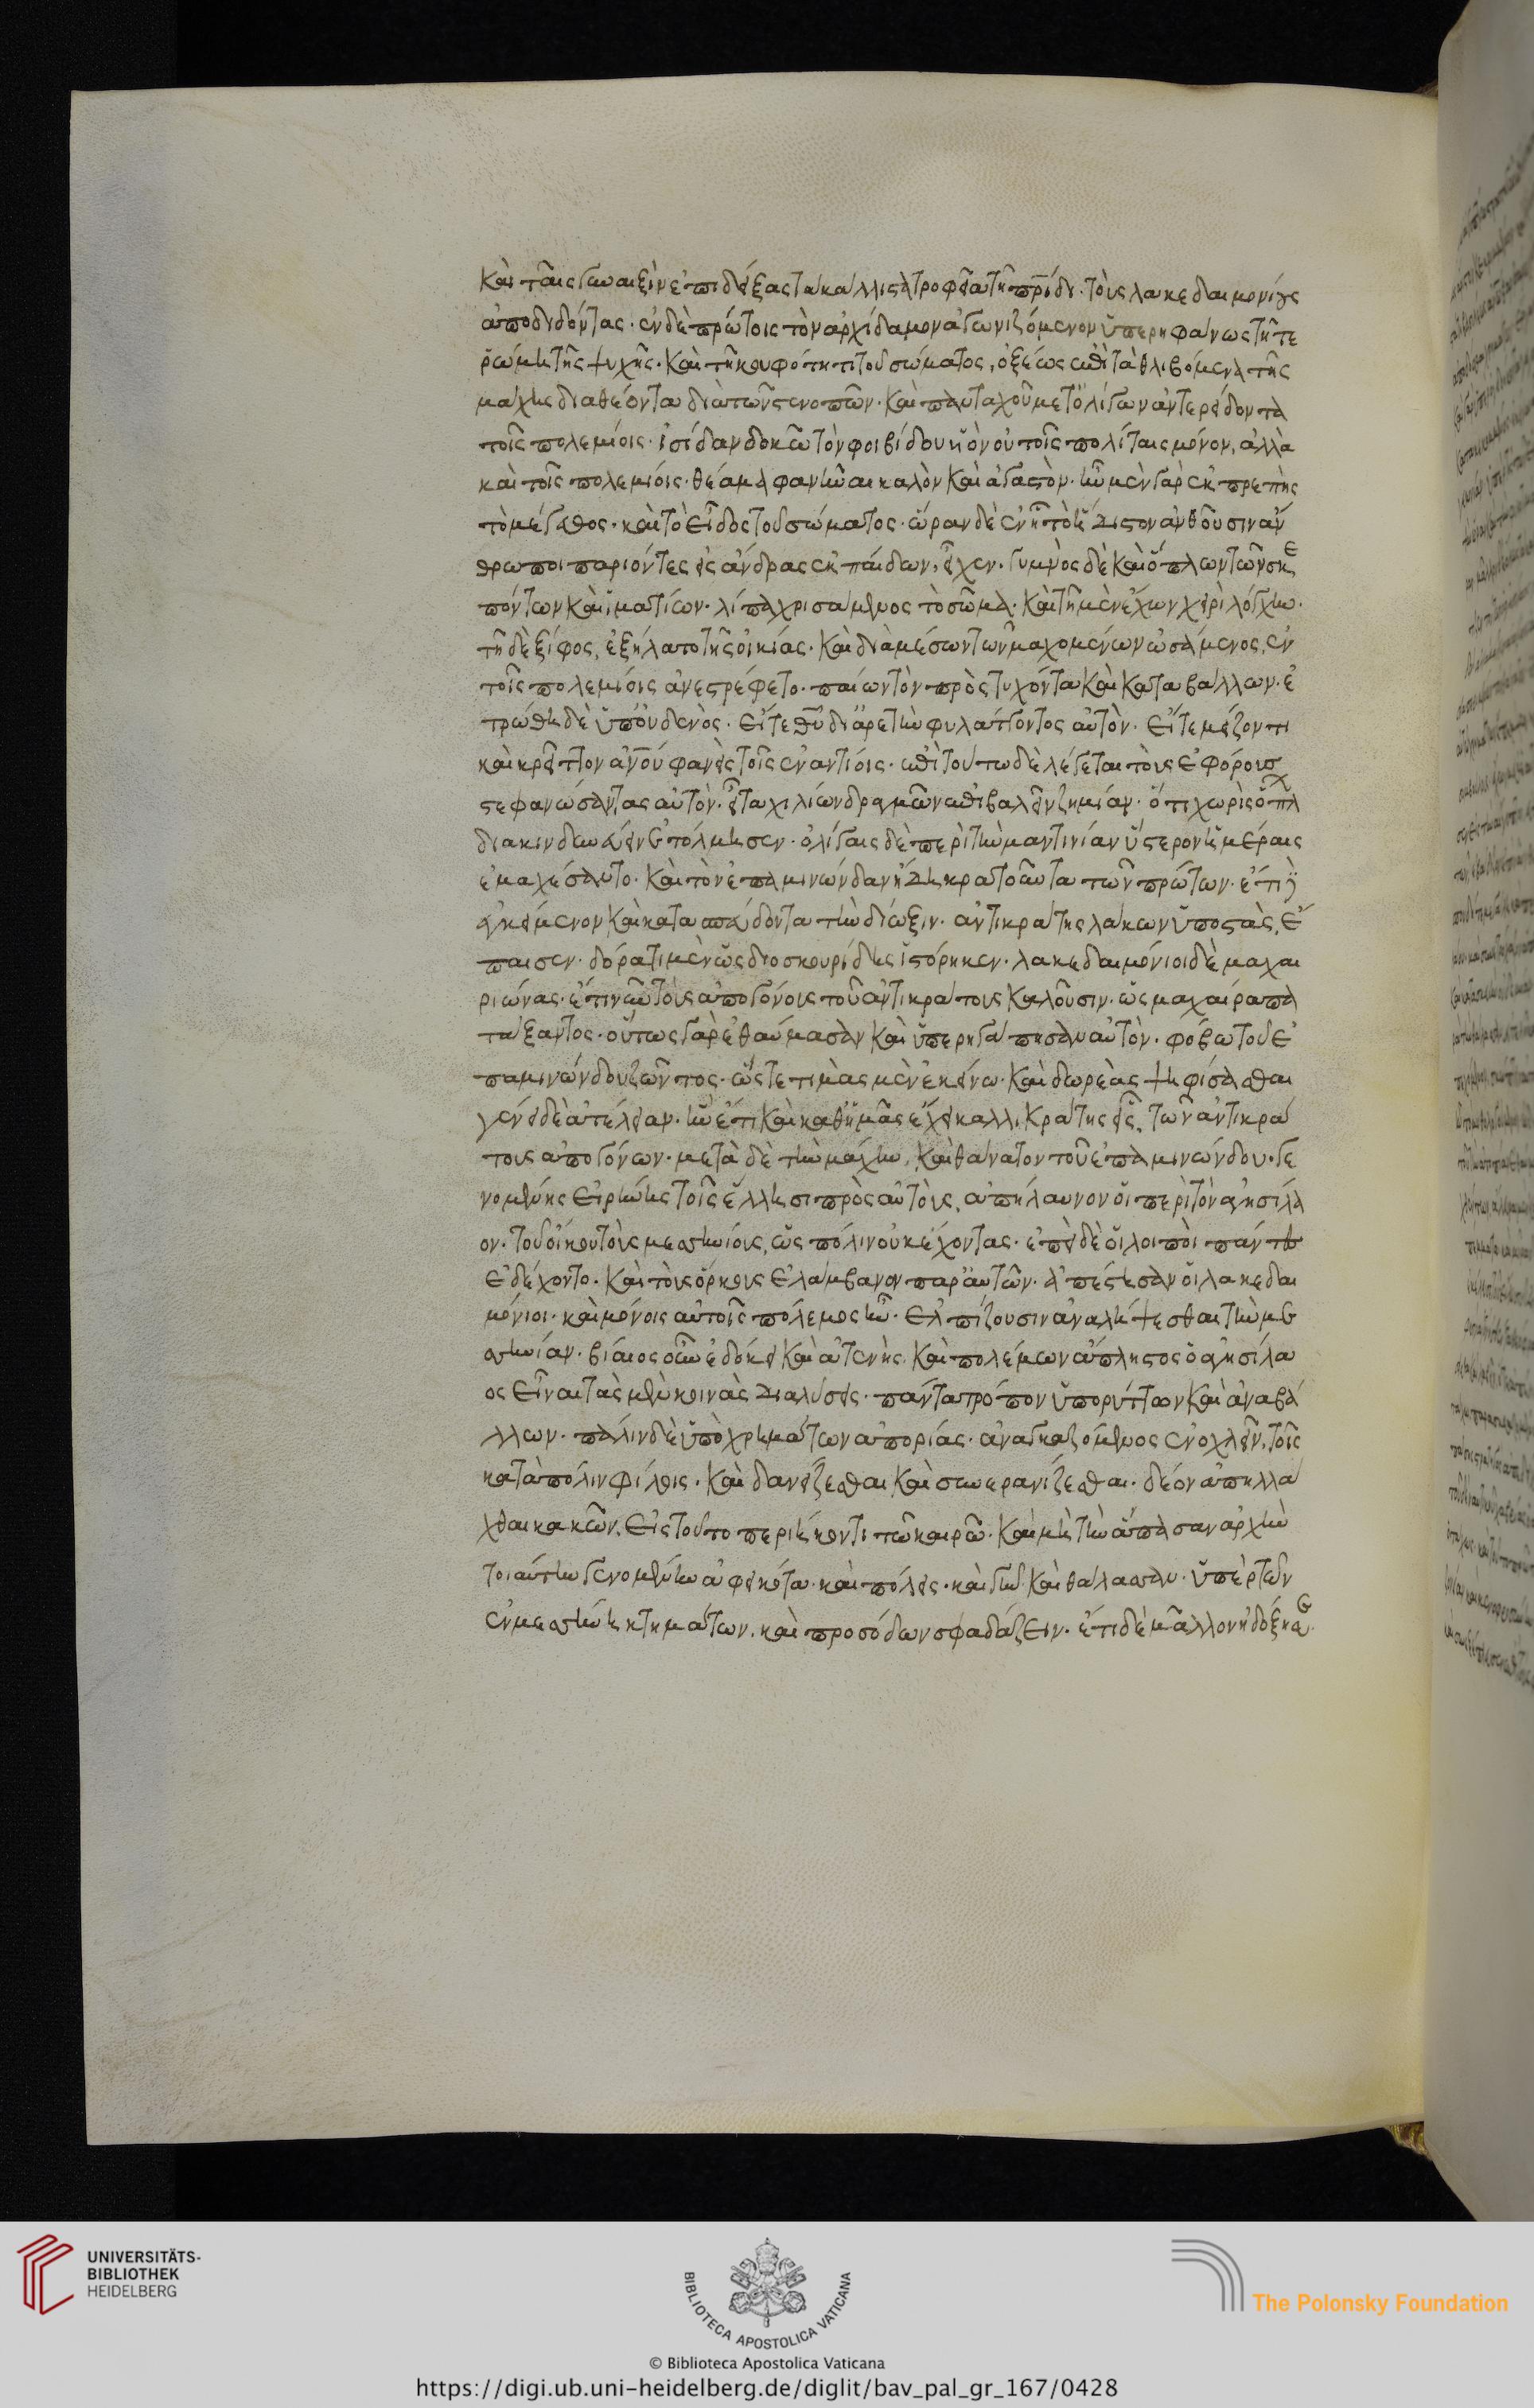 καὶ ταῖς γυναιξὶν ἐπιδείξας τὰ κάλλιστα τροφεῖα τῆ πρίδι. τοὺς λακεδαιμονίους
ἀποδιδόντας. ἐν δὲ πρώτοις τὸν ἀρχίδαμον ἀγωνιζόμενον ὑπερηφάνως τῆ τε
ῥώμη τῆς ψυχῆς. καὶ τῆ κουφότητι τοῦ σώματος, ὀξέως ἐπὶ τὰ θλιβόμενα τῆς
μάχης διαθέοντα διὰ τῶν στενοπῶν. καὶ πανταχοῦ μετ' ὀλίγων ἀντερείδοντα
τοῖς πολεμίοις. ἰσίδαν δοκῶ τὸν φοιβίδου υἱὸν οὐ τοῖς πολίταις μόνον, ἀλλὰ
καὶ τοῖς πολεμίοις. θέαμα φανῆναι καλὸν καὶ ἀγαστόν. ἦν μὲν γὰρ ἐκπρεπὴς
τὸ μέγεθος. καὶ τὸ εἶδος τοῦ σώματος. ὥραν δὲ ἐν ἧ τὸ ἥδιστον ἀνθοῦσιν ἄν
θρωποι παριόντες εἰς ἄνδρας ἐκ παίδων, εἶχεν. γυμνὸς δὲ καὶ ὅπλων τῶν σκε
πόντων καὶ ἱματίων. λίπα χρισάμενος τὸ σῶμα. καὶ τῆ μὲν ἔχων χειρὶ λόγχην.
τῆ δὲ ξίφος, ἐξήλατο τῆς οἰκίας. καὶ διὰ μέσων τῶν μαχομένων ὠσάμενος, ἐν
τοῖς πολεμίοις ἀνεστρέφετο. παίων τὸν προστυχόντα καὶ καταβάλλων. ἐ
τρώθη δὲ ὑπ' οὐδενός. εἴτε θυ δι' ἀρετὴν φυλάττοντος αὐτόν. εἴτε μεῖζόν τι
καὶ κρεῖττον ἀνου φανεὶς τοῖς ἐναντίοις. ἐπὶ τούτω δὲ λέγεται τοὺς ἐφόρους
στεφανώσαντας αὐτόν. εἶτα χιλίων δραχμῶν ἐπιβαλεῖν ζημίαν. ὅτι χωρὶς ὅπλ
διακινδυνεύειν ἐτόλμησεν. ὀλίγαις δὲ περὶ τὴν μαντινίαν ὕστερον ἡμέραις
ἐμαχέσαντο. καὶ τὸν ἐπαμινώνδαν ἤδη κρατοῦντα τῶν πρώτων. ἔτι δ
ἐγκείμενον καὶ κατασπεύδοντα τὴν δίωξιν. ἀντικράτης λάκων ὑποστὰς, ἔ
παισεν. δόρατι μὲν ὡς διοσκουρίδης ἱστόρηκεν. λακεδαιμόνιοι δὲ μαχαι
ριώνας. ἔτι νῦν τοὺς ἀπογόνους τοῦ ἀντικράτους καλοῦσιν. ὡς μαχαίρα πα
τάξαντος. οὕτως γὰρ ἐθαύμασαν καὶ ὑπερηγάπησαν αὐτόν. φόβω τοῦ ἐ
παμινώνδου ζῶντος. ὥστε τιμὰς μὲν ἐκείνω. καὶ δωρεὰς ψηφίσασθαι
γένει δὲ ἀτέλειαν. ἣν ἔτι καὶ καθ' ἡμᾶς ἔχει καλλικράτης εἷς, τῶν ἀντικρά
τους ἀπογόνων. μετὰ δὲ τὴν μάχην, καὶ θάνατον τοῦ ἐπαμινώνδου. γε
νομένης εἰρήνης τοῖς ἕλλησι πρὸς αὐτοὺς, ἀπήλαυνον οἱ περὶ τὸν ἀγησίλα
ον. τοῦ ὅρκου τοὺς μεσσηνίους, ὡς πόλιν οὐκ ἔχοντας. ἐπεὶ δὲ οἱ λοιποὶ πάντες
ἐδέχοντο. καὶ τοὺς ὅρκους ἐλάμβανον παρ' αὐτῶν. ἀπέστησαν οἱ λακεδαι
μόνιοι. καὶ μόνοις αὐτοῖς πόλεμος ἦν. ἐλπίζουσιν ἀναλήψεσθαι τὴν με
σσηνίαν. βίαιος οὖν ἐδόκει καὶ ἀτενὴς. καὶ πολέμων ἄπληστος ὁ ἀγησίλα
ος εἶναι τὰς μὲν κοινὰς διαλύσεις. πάντα τρόπον ὑπορύττων καὶ ἀναβά
λλων. πάλιν δὲ ὑπὸ χρημάτων ἀπορίας. ἀναγκαζόμενος ἐνοχλεῖν, τοῖς
κατὰ πόλιν φίλοις. καὶ δανείζεσθαι καὶ συνερανίζεσθαι. δέον ἀπηλλά
χθαι κακῶν, εἰς τοῦτο περιήκοντι τῶ καιρῶ. καὶ μὴ τὴν ἅπασαν ἀρχὴν
τοιαύτην γενομένην ἀφεικότα. καὶ πόλεις. καὶ γῆν. καὶ θάλασσαν. ὑπὲρ τῶν
ἐν μεσσήνη κτημάτων. καὶ προσόδων σφαδάζειν. ἔτι δὲ μᾶλλον ἠδόξησε.
UNIVERSITÄTS-
BIBLIOTHEK
HEIDELBERG
BIBLIOTECA APOSTOLICA VATICANA
The Polonsky Foundation
© Biblioteca Apostolica Vaticana
https://digi.ub.uni-heidelberg.de/diglit/bav_pal_gr_167/0428